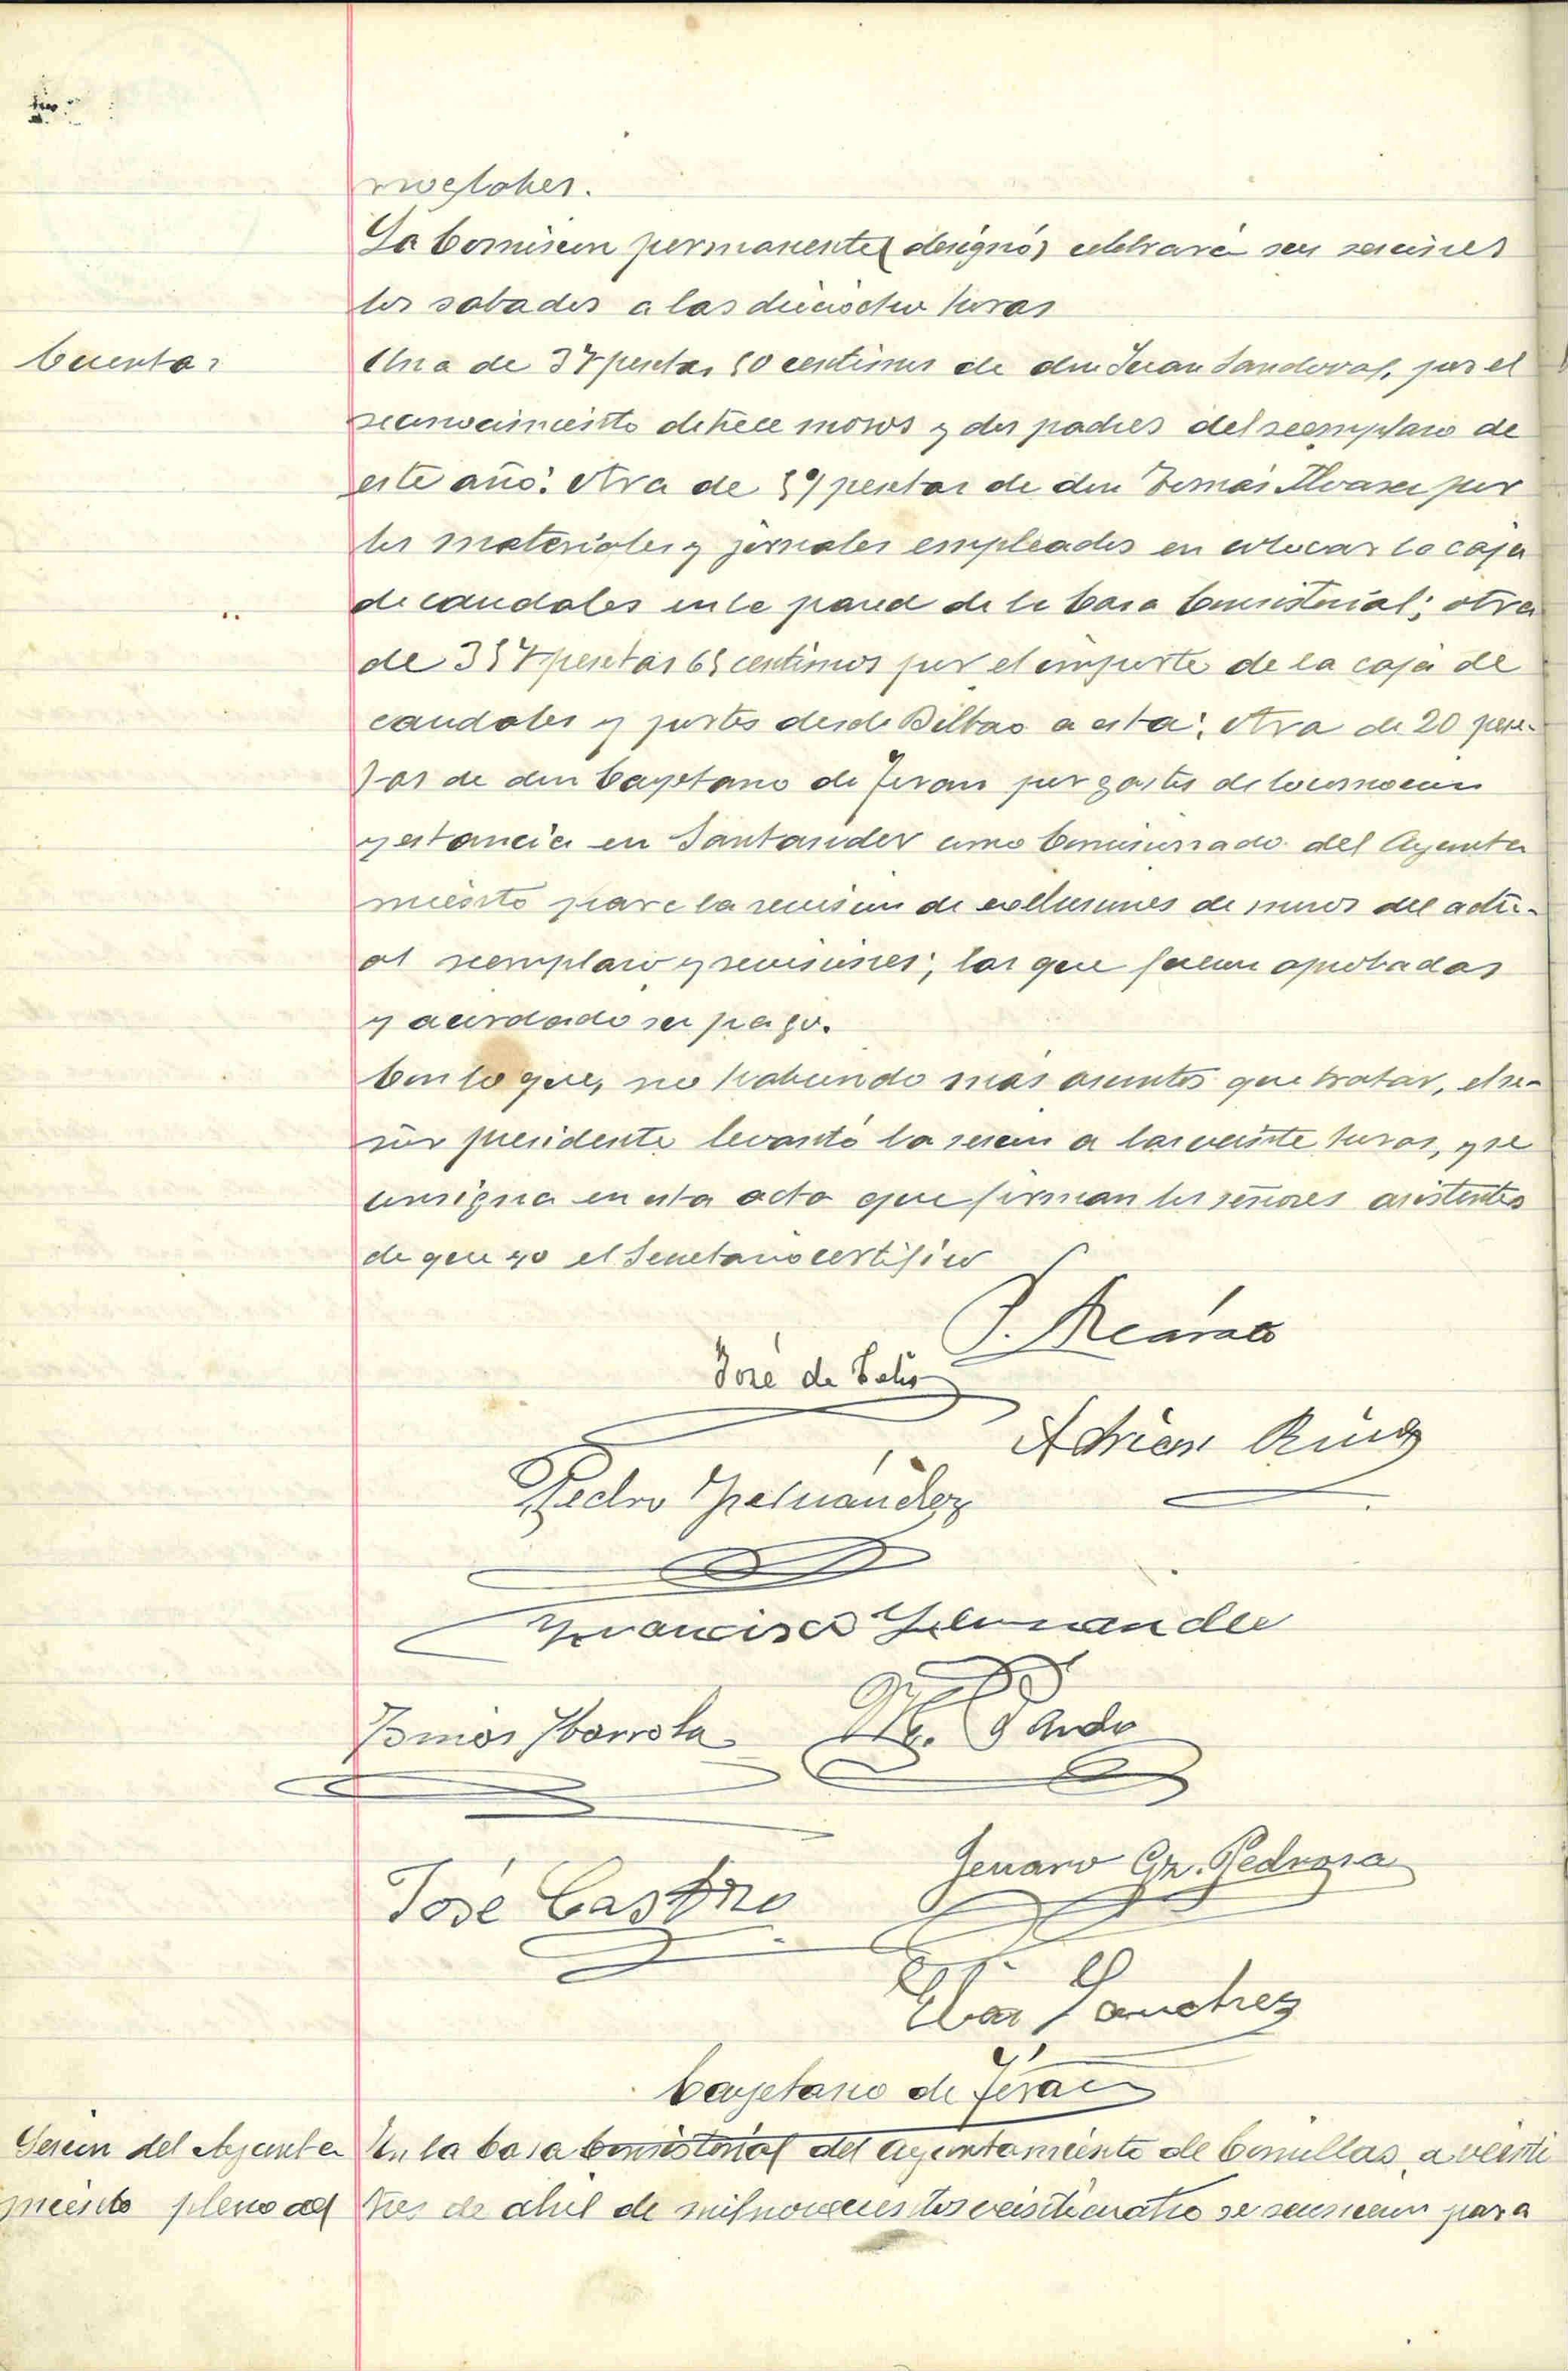 La Comision permanente designó celebrará sus sesiones
los sabados a las dieciocho horas
Cuentas
Una de 37 pesetas 50 centimos de don Juan Sandoval, por el
reconocimiento de trece mozos y dos padres del reemplazo de
este año: otra de pesetas de don Tomás por
los materiales y jornales empleados en colocar la caja
de caudales en la pared de la Casa Consistorial; otra
de 357 pesetas 65 centimos por el importe de la caja de
caudales y portes desde Bilbao a esta; otra de 20 pese-
tas de don Cayetano de Teran por gastos de locomocion
y estancia en Santander como Comisionado del Ayunta
miento para la revision de exclusiones de mozos del actu-
al reemplazo y revisiones; las que fueron aprobadas
y acordado su pago.
Con lo que, no habiendo más asuntos que tratar, el se-
ñor presidente levantó la sesion a las veinte horas, y se
consigna en esta acta que firman los señores asistentes
de que yo el Secretario certifico
José de Celis
Adrian Ruiz
Pedro Fernández
Francisco Fernandez
M. Pando
José Castro
Genaro Gz. Pedrosa
Elias Sanchez
Cayetano de Terán
Sesion del Ayunta
miento pleno del
En la Casa Consistorial del Ayuntamiento de Comillas, a veinti
tres de abril de mil novecientos veinticuatro se reunieron para